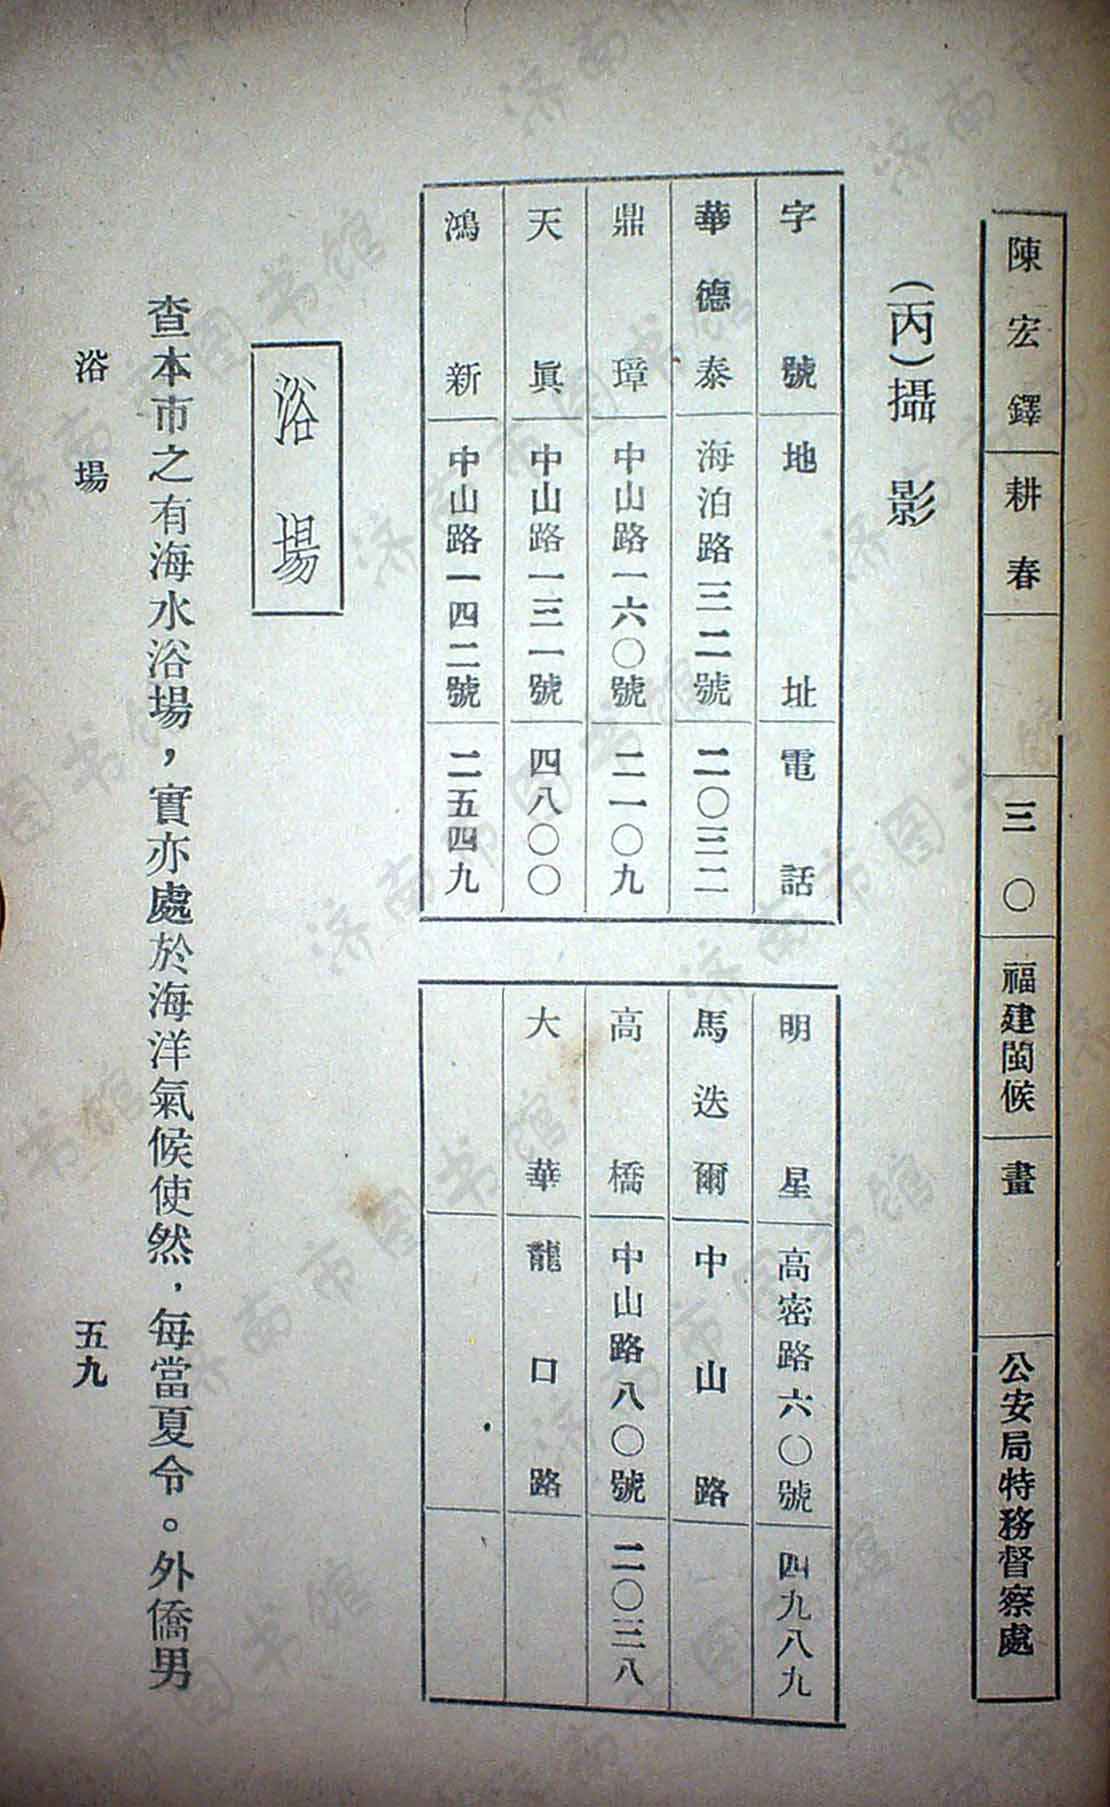 陳宏鐸 耕春 三〇 福建閩候 畫 公安局特務督察處
（丙）攝影
字號 地址 電話
華德泰 海泊路三二號 二〇三二
鼎璋 中山路一六〇號 二一〇九
天眞 中山路一三一號 四八〇〇
鴻新 中山路一四二號 二五四九
明星 高密路六〇號 四九八九
馬迭爾 中山路
高橋 中山路八〇號 二〇三八
大華 龍口路
浴場
查本市之有海水浴場，實亦處於海洋氣候使然，每當夏令。外僑男
浴場 五九
济南市图书馆